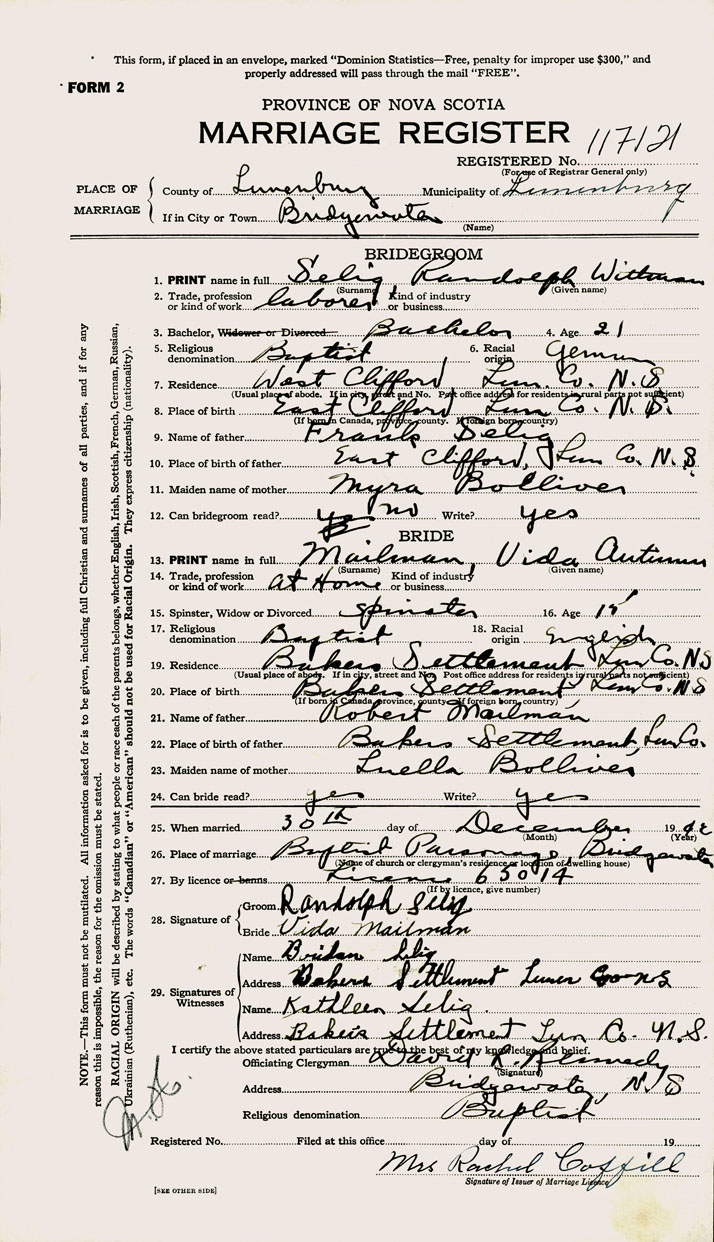 This form, if placed in an envelope, marked "Dominion Statistics—Free, penalty for improper use $300," and
properly addressed will pass through the mail "FREE".
FORM 2
PROVINCE OF NOVA SCOTIA
MARRIAGE REGISTER
REGISTERED No. 117121
(For use of Registrar General only)
PLACE OF MARRIAGE
County of Lunenburg Municipality of Lunenburg
If in City or Town Bridgewater
(Name)
BRIDEGROOM
1. PRINT name in full Selig Randolph Wittman
(Surname) (Given name)
2. Trade, profession or kind of work laborer Kind of industry or business
3. Bachelor, Widower or Divorced Bachelor 4. Age 21
5. Religious denomination Baptist 6. Racial origin German
7. Residence West Clifford, Lun. Co. N.S
(Usual place of abode. If in city, street and No. Post office address for residents in rural parts not sufficient)
8. Place of birth East Clifford Lun Co. N.S.
(If born in Canada, province, county. If foreign born, country)
9. Name of father Frank Selig
10. Place of birth of father East Clifford, Lun Co. N.S
11. Maiden name of mother Myra Bolliver
12. Can bridegroom read? no Write? yes
BRIDE
13. PRINT name in full Mailman, Vida Autumn
(Surname) (Given name)
14. Trade, profession or kind of work at Home Kind of industry or business
15. Spinster, Widow or Divorced Spinster 16. Age
17. Religious denomination Baptist 18. Racial origin English
19. Residence Bakers Settlement Lun Co. N S
(Usual place of abode. If in city, street and No. Post office address for residents in rural parts not sufficient)
20. Place of birth Bakers Settlement Lun Co. N S
(If born in Canada province, county. If foreign born, country)
21. Name of father Robert Mailman
22. Place of birth of father Bakers Settlement, Lun Co.
23. Maiden name of mother Luella Bolliver
24. Can bride read? yes Write? yes
25. When married 30th day of December 19
(Month) (Year)
26. Place of marriage Baptist Parsonage, Bridgewater
(Name of church or clergyman's residence or location of dwelling house)
27. By licence or banns License 65014
(If by licence, give number)
28. Signature of
Groom Randolph Selig
Bride Vida Mailman
29. Signatures of Witnesses
Name Selig
Address Bakers Settlement Lunen Co N S
Name Kathleen Selig
Address Bakers Settlement Lun Co. N.S.
I certify the above stated particulars are true to the best of my knowledge and belief.
Officiating Clergyman David
(Signature)
Address Bridgewater, N.S
Religious denomination Baptist
Registered No. Filed at this office day of 19
Mrs Rachel Coffill
Signature of Issuer of Marriage Licence
[SEE OTHER SIDE]
NOTE.—This form must not be mutilated. All information asked for is to be given, including full Christian and surnames of all parties, and if for any
reason this is impossible, the reason for the omission must be stated.
RACIAL ORIGIN will be described by stating to what people or race each of the parents belongs, whether English, Irish, Scottish, French, German, Russian,
Ukrainian (Ruthenian), etc. The words "Canadian" or "American" should not be used for Racial Origin. They express citizenship (nationality).